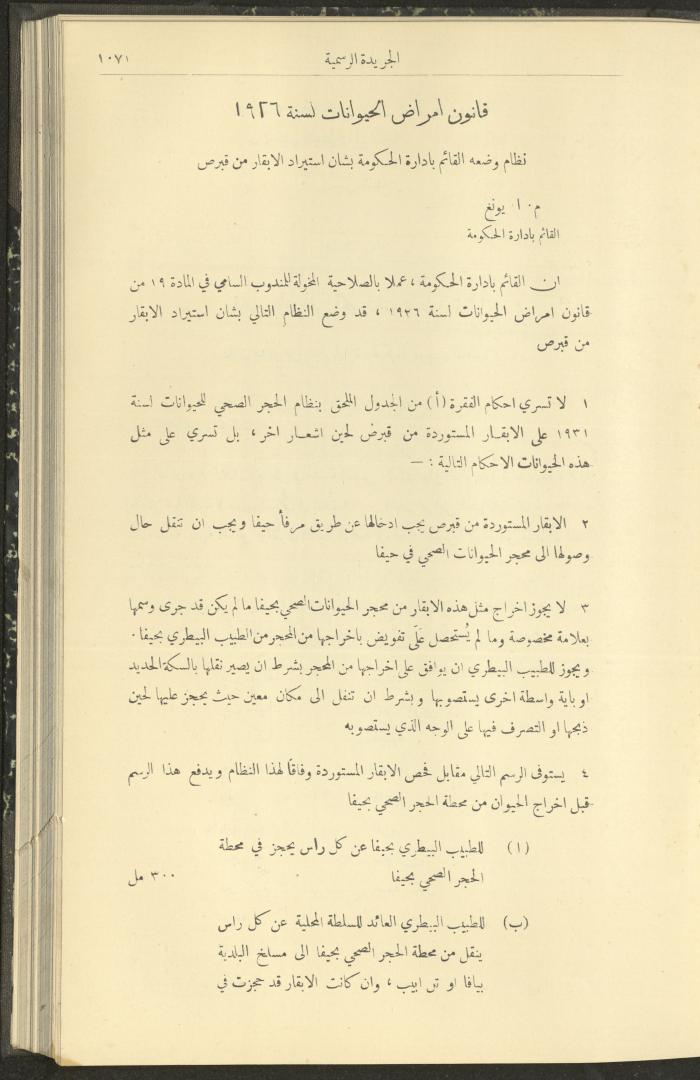 ١٠٧١ الجريدة الرسمية
قانون امراض الحيوانات لسنة ١٩٢٦
نظام وضعه القائم بادارة الحكومة بشان استيراد الابقار من قبرص
م. ا. يونغ
القائم بادارة الحكومة
ان القائم بادارة الحكومة ، عملا بالصلاحية المخولة للمندوب السامي في المادة ١٩ من
قانون امراض الحيوانات لسنة ١٩٢٦ ، قد وضع النظام التالي بشان استيراد الابقار
من قبرص
١ لا تسري احكام الفقرة (أ) من الجدول الملحق بنظام الحجر الصحي للحيوانات لسنة
١٩٣١ على الابقار المستوردة من قبرض لحين اشعار اخر ، بل تسري على مثل
هذه الحيوانات الاحكام التالية : —
٢ الابقار المستوردة من قبرص يجب ادخالها عن طريق مرفأ حيفا ويجب ان تنقل حال
وصولها الى محجر الحيوانات الصحي في حيفا
٣ لا يجوز اخراج مثل هذه الابقار من محجر الحيوانات الصحي بحيفا ما لم يكن قد جرى وسمها
بعلامة مخصوصة وما لم يُستحصل عَلَى تفويض باخراجها من المحجر من الطبيب البيطري بحيفا .
ويجوز للطبيب البيطري ان يوافق على اخراجها من المحجر بشرط ان يصير نقلها بالسكة الحديد
او باية واسطة اخرى يستصوبها وبشرط ان تنقل الى مكان معين حيث يحجز عليها لحين
ذبحها او التصرف فيها على الوجه الذي يستصوبه
٤ يستوفى الرسم التالي مقابل فحص الابقار المستوردة وفاقًا لهذا النظام ويدفع هذا الرسم
قبل اخراج الحيوان من محطة الحجر الصحي بحيفا
(١) للطبيب البيطري بحيفا عن كل راس يحجز في محطة
الحجر الصحي بحيفا ٣٠٠ مل
(ب) للطبيب البيطري العائد للسلطة المحلية عن كل راس
ينقل من محطة الحجر الصحي بحيفا الى مسلخ البلدية
بيافا او تل ابيب ، وان كانت الابقار قد حجزت في